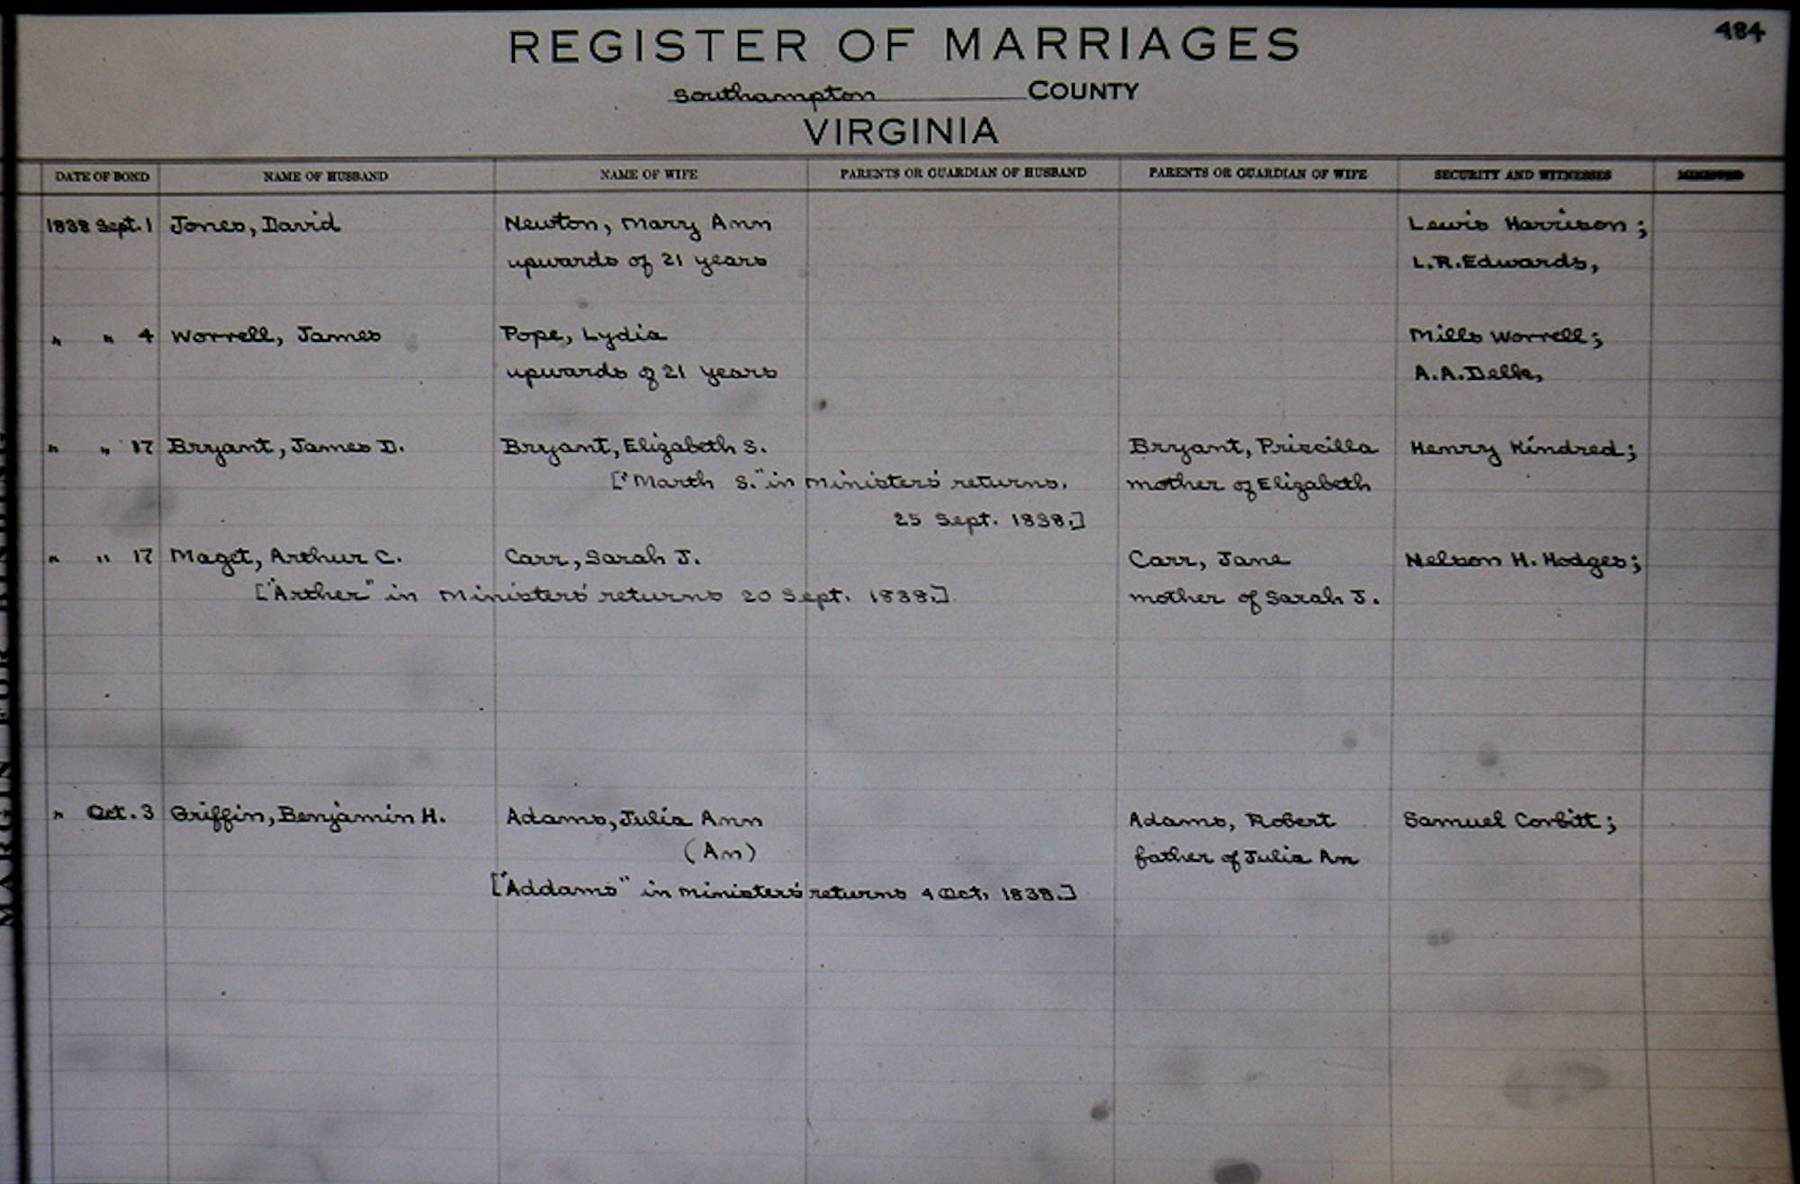 484
REGISTER OF MARRIAGES
Southampton COUNTY
VIRGINIA
DATE OF BOND NAME OF HUSBAND NAME OF WIFE PARENTS OR GUARDIAN OF HUSBAND PARENTS OR GUARDIAN OF WIFE SECURITY AND WITNESSES
1838 Sept. 1 Jones, David Newton, Mary Ann Lewis Harrison;
upwards of 21 years L.R. Edwards,
" " 4 Worrell, James Pope, Lydia Mills Worrell;
upwards of 21 years A.A. Delk,
" " 17 Bryant, James D. Bryant, Elizabeth S. Bryant, Priscilla Henry Kindred;
["Marth S." in ministers' returns, mother of Elizabeth
25 Sept. 1838.]
" " 17 Maget, Arthur C. Carr, Sarah J. Carr, Jane Nelson H. Hodges;
["Arther" in ministers' returns 20 Sept. 1838.] mother of Sarah J.
" Oct. 3 Griffin, Benjamin H. Adams, Julia Ann Adams, Robert Samuel Corbitt;
(An) father of Julia An
["Addams" in ministers' returns 4 Oct. 1838.]